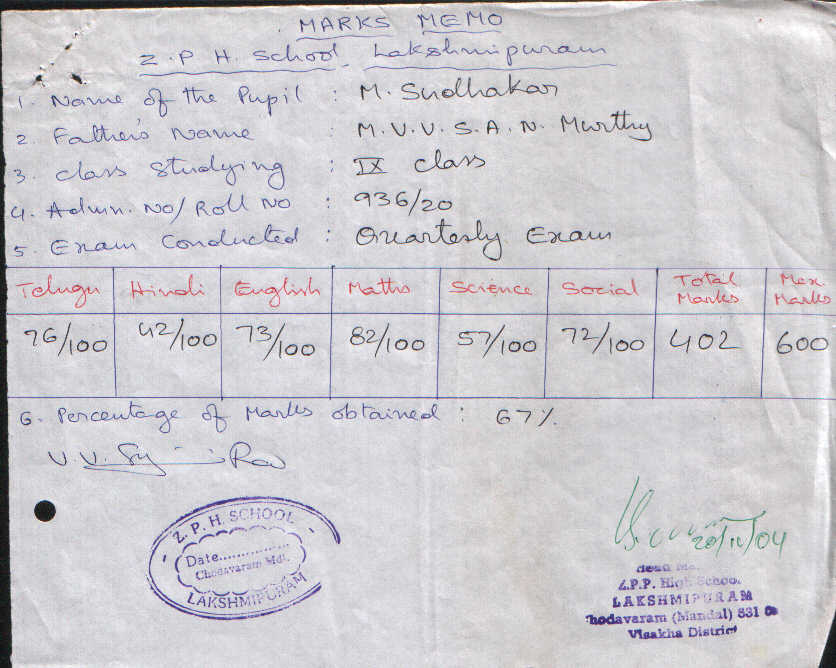 MARKS MEMO
Z.P H. School, Lakshmipuram
1. Name of the Pupil : M. Sudhakar
2. Father's Name : M.V.V.S.A.N. Murthy
3. Class Studying : IX class
4. Admn. No/Roll No : 936/20
5. Exam Conducted : Quarterly Exam
Telugu Hindi English Maths Science Social Total Marks Max Marks
76/100 42/100 73/100 82/100 57/100 72/100 402 600
6. Percentage of Marks obtained : 67%
V.V. Rao
Z.P.H. SCHOOL
Date................
Chodavaram Mdl.
LAKSHMIPURAM
/04
Head
Z.P.P. High School
LAKSHMIPURAM
hodavaram (Mandal) 531
Visakha District